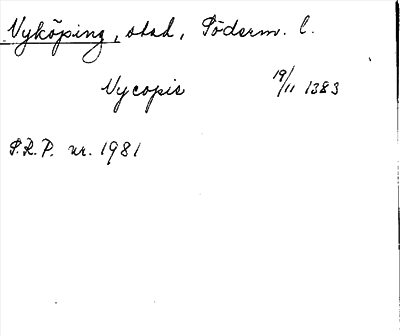 Nyköping, stad, Söderm. l.
Nycopie 19/11 1383
S.R.P. nr. 1981